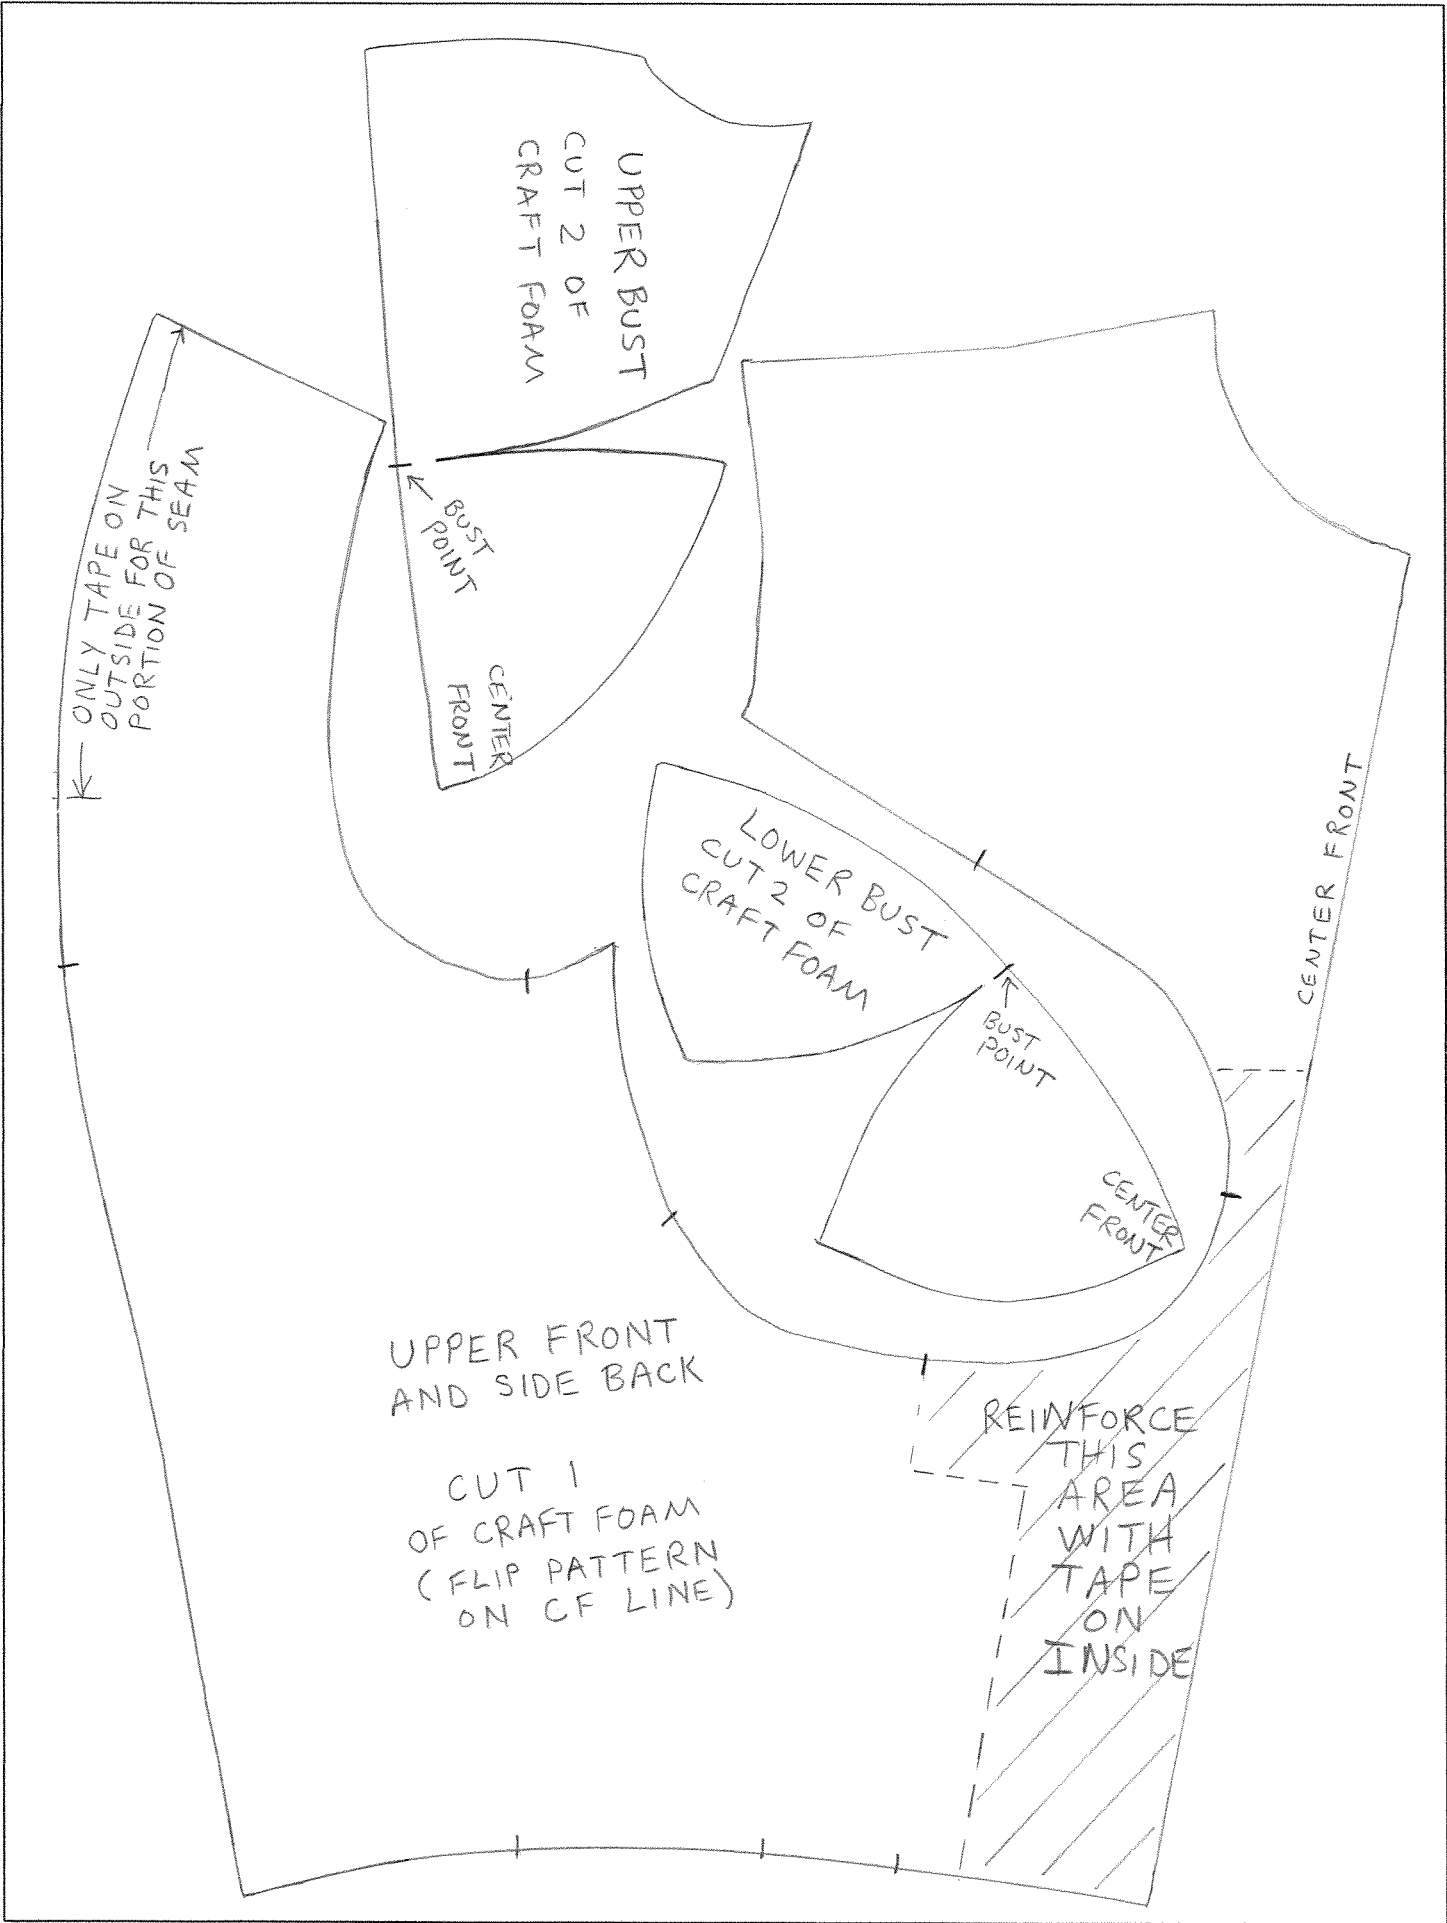 UPPER BUST
CUT 2 OF
CRAFT FOAM
BUST
POINT
CENTER
FRONT
ONLY TAPE ON
OUTSIDE FOR THIS
PORTION OF SEAM
LOWER BUST
CUT 2 OF
CRAFT FOAM
BUST
POINT
CENTER
FRONT
CENTER FRONT
UPPER FRONT
AND SIDE BACK
CUT 1
OF CRAFT FOAM
(FLIP PATTERN
ON CF LINE)
REINFORCE
THIS
AREA
WITH
TAPE
ON
INSIDE